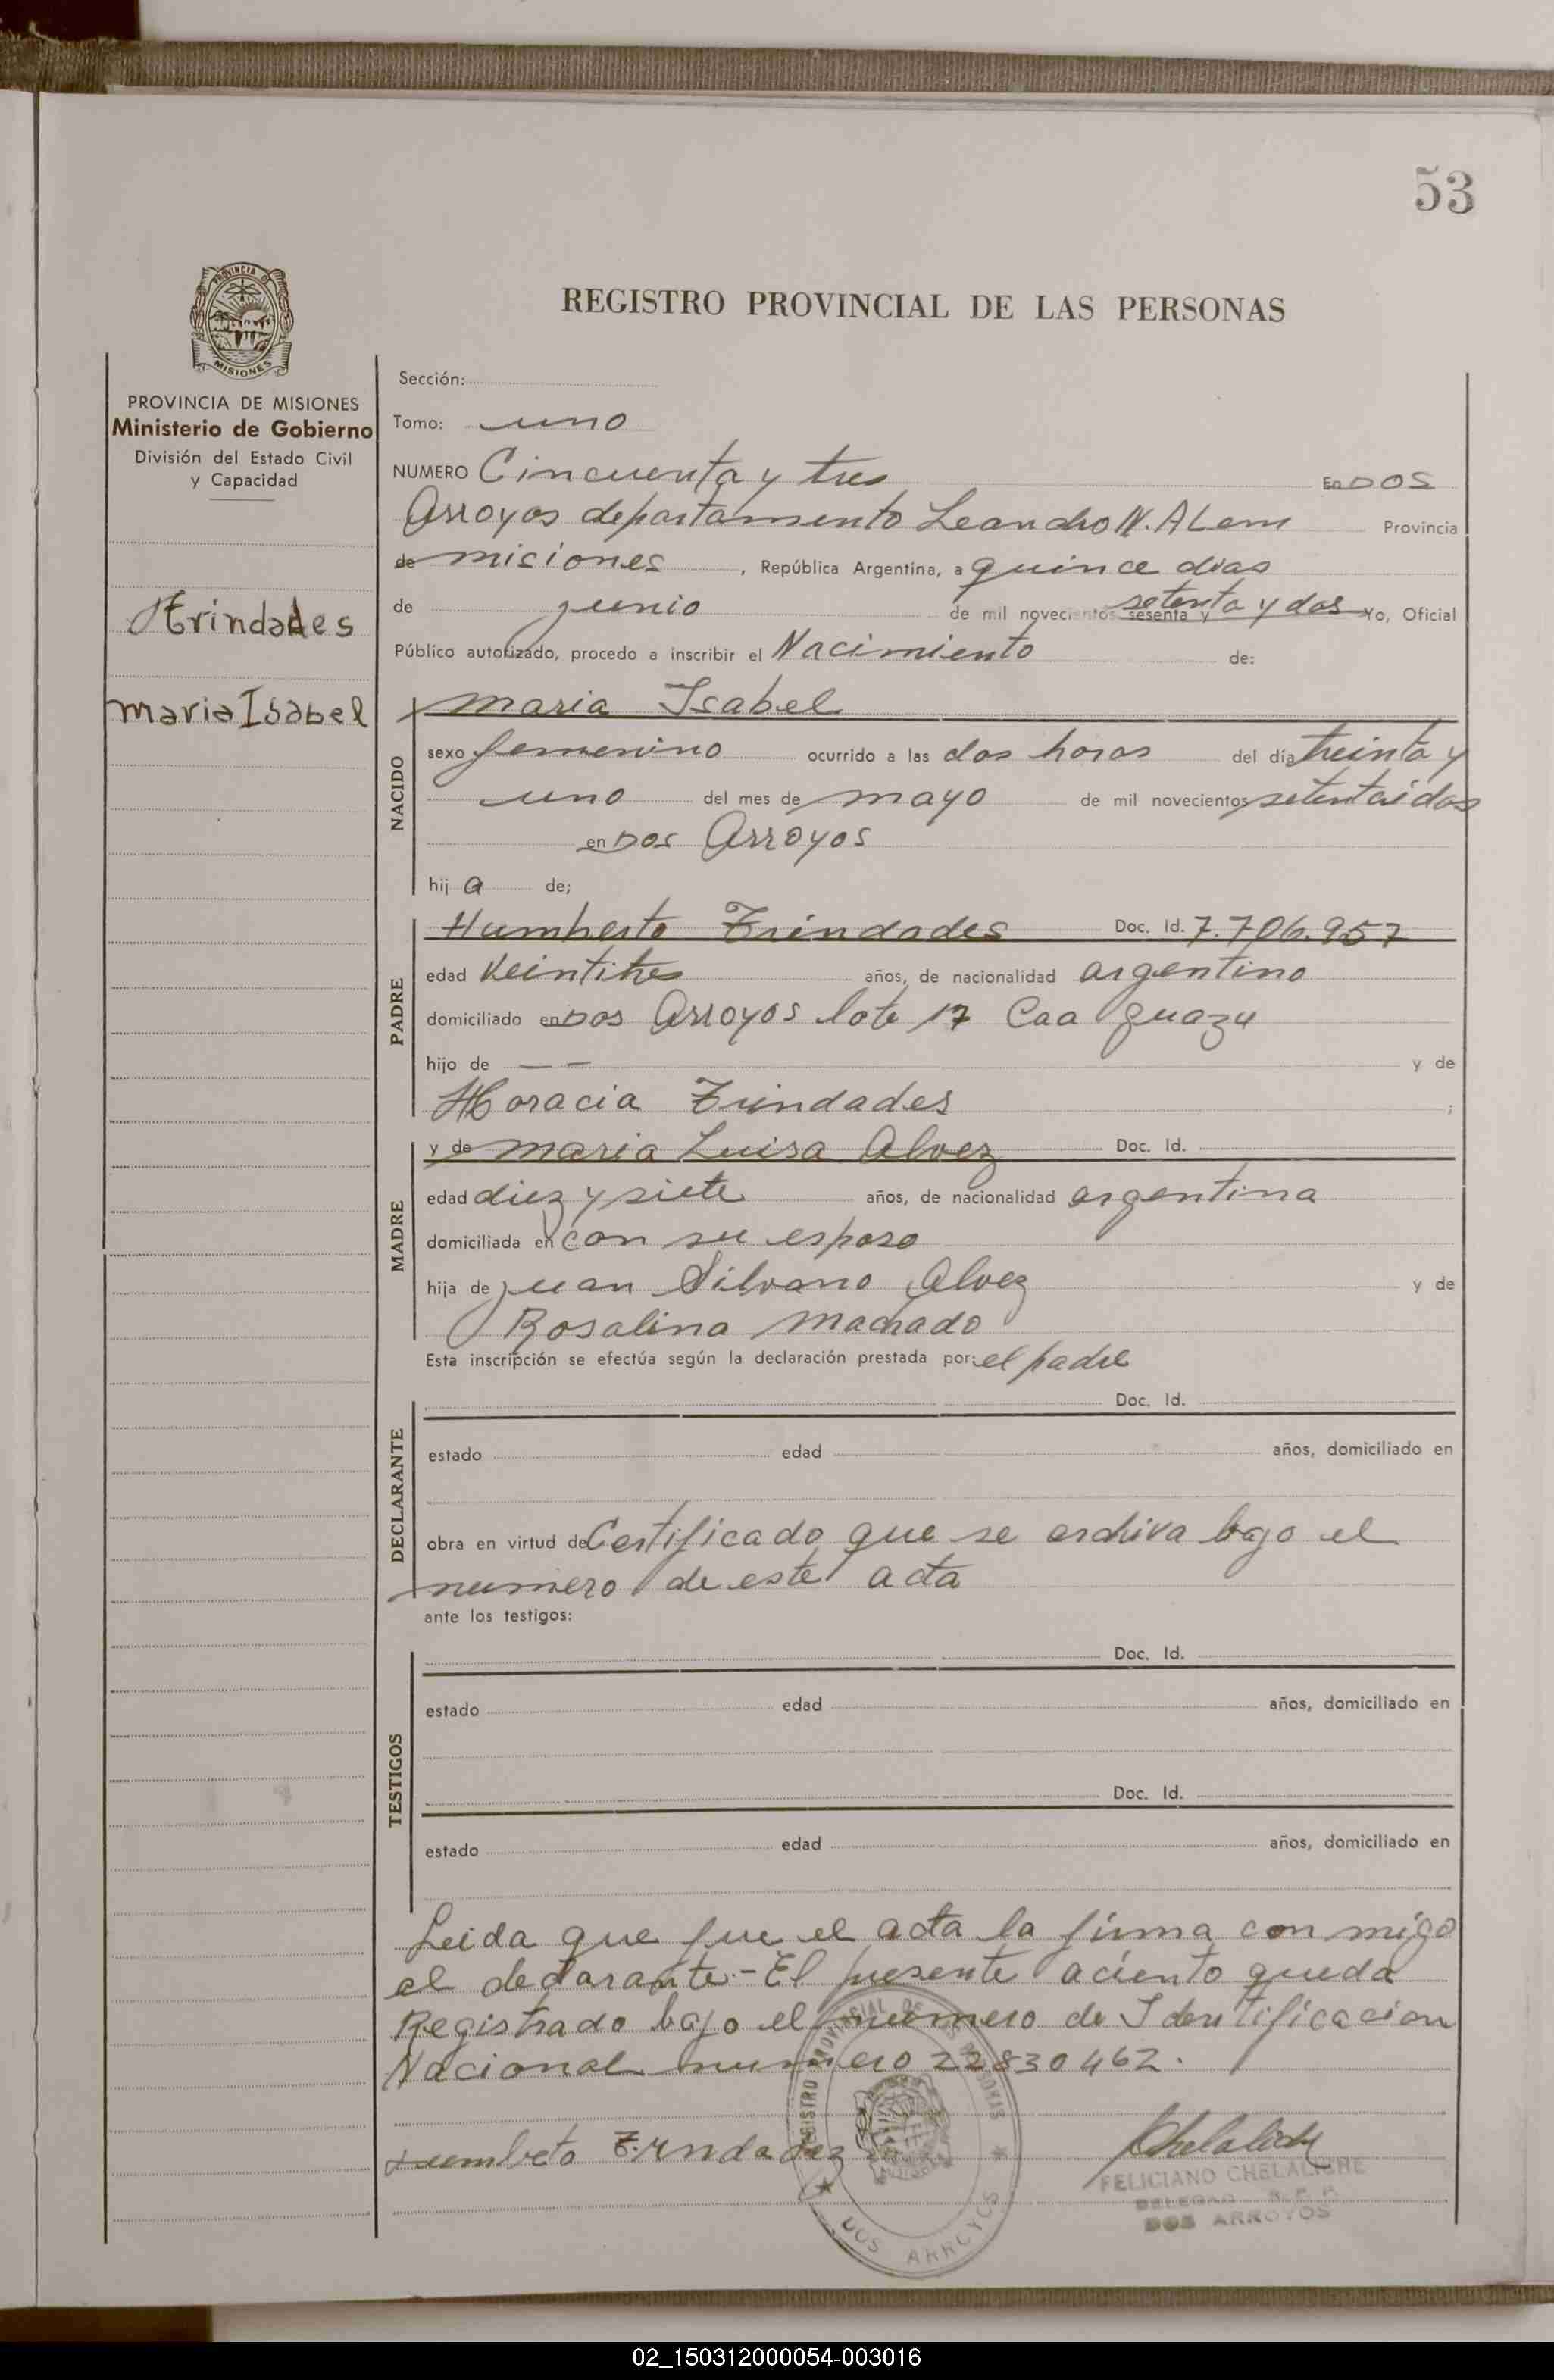 53
PROVINCIA DE
MISIONES
REGISTRO PROVINCIAL DE LAS PERSONAS
PROVINCIA DE MISIONES
Ministerio de Gobierno
División del Estado Civil
y Capacidad
Trindades
maria Isabel
Sección:
Tomo: uno
NUMERO Cincuenta y tres En DOS
Arroyos departamento Leandro N. ALem Provincia
de misiones , República Argentina, a quince dias
de junio de mil novecientos sesenta y setenta y dos Yo, Oficial
Público autorizado, procedo a inscribir el Nacimiento de:
NACIDO
maria Isabel
sexo femenino ocurrido a las dos horas del día treinta y
uno del mes de mayo de mil novecientos setentaidos
en Dos Arroyos
hij a de;
PADRE
Humberto Trindades Doc. Id. 7.706.957
edad Veintitres años, de nacionalidad argentino
domiciliado en Dos Arroyos lote 17 Caa guazu
hijo de — — y de
Horacia Trindades ;
MADRE
y de maria Luisa Alvez Doc. Id.
edad diez y siete años, de nacionalidad argentina
domiciliada en con su esposo
hija de juan Silvano Alvez y de
Rosalina Machado
Esta inscripción se efectúa según la declaración prestada por: el padre
DECLARANTE
Doc. Id.
estado edad años, domiciliado en
obra en virtud de Certificado que se archiva bajo el
numero de este acta
ante los testigos:
TESTIGOS
Doc. Id.
estado edad años, domiciliado en
Doc. Id.
estado edad años, domiciliado en
Leida que fue el acta la firma con migo
el declarante.- El presente aciento queda
Registrado bajo el numero de Identificacion
Nacional numero 22830462.
REGISTRO PROVINCIAL DE LAS PERSONAS
DOS ARROYOS
Chelaliche
FELICIANO CHELALICHE
DOS ARROYOS
02_150312000054-003016